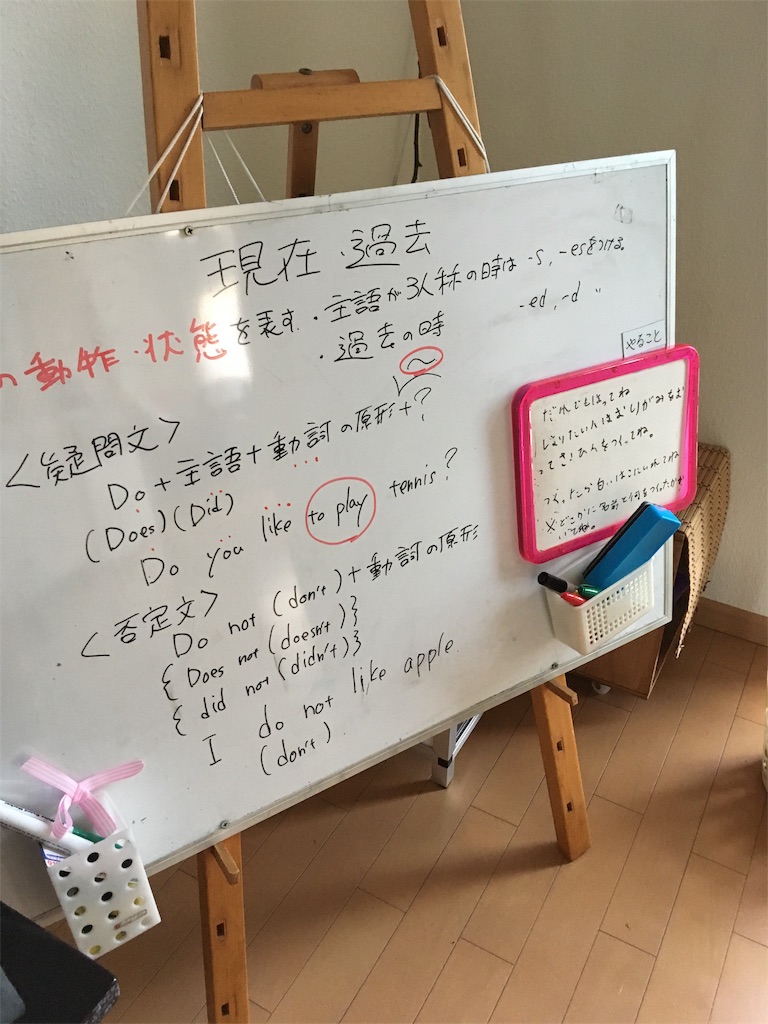 現在・過去
の動作・状態を表す ・主語が3人称の時は -s, -esをつける。
・過去の時 -ed, -d 〃
〜
<疑問文>
Do + 主語 + 動詞の原形 + ?
(Does)(Did)
Do you like to play tennis?
<否定文>
Do not (don't) + 動詞の原形
{ Does not (doesn't) }
{ did not (didn't) }
I do not like apple.
(don't)
やること
だれでもはってね
しりたい人はおりがみをお
ってさくひんをつくってね。
つくったら白いはこにいれてね
※どこかに名前と何をつくったかか
いてね。